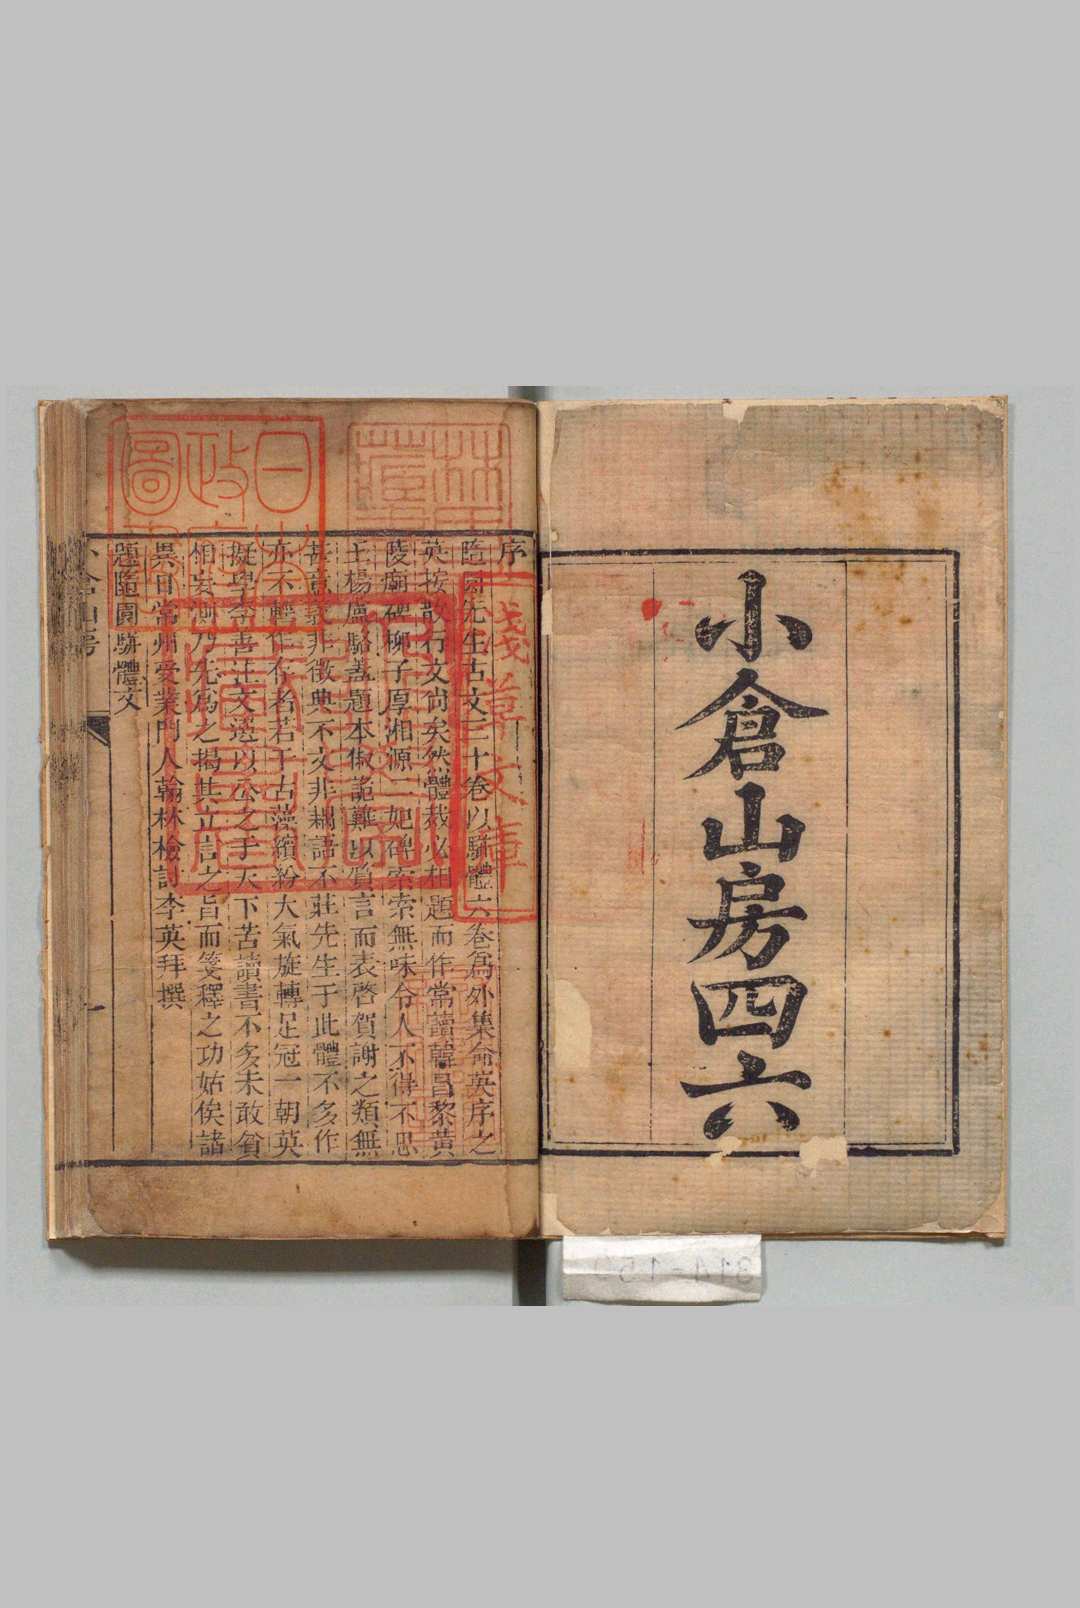 小倉山房四六
序
隨園先生古文三十卷以駢體六卷爲外集命英序之
英按散行文尚矣然體裁必相題而作常讀韓昌黎黃
陵廟碑柳子厚湘源二妃碑索索無味令人不得不思
王楊盧駱蓋題本俶詭難以質言而表啓賀謝之類無
甚意義非徵典不文非耦語不莊先生于此體不多作
亦不輕作存者若干古藻繽紛大氣旋轉足冠一朝英
擬學李善註文選以公之于天下苦讀書不多未敢貿
相妄測乃先爲之揭其立言之旨而箋釋之功姑俟諸
異日常州受業門人翰林檢討李英拜撰
題隨園駢體文
淺草文庫
日本政府圖書
林氏藏書
314-15